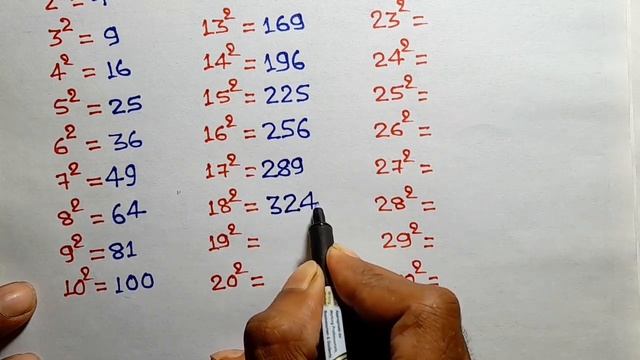 3² = 9
4² = 16
5² = 25
6² = 36
7² = 49
8² = 64
9² = 81
10² = 100
13² = 169
14² = 196
15² = 225
16² = 256
17² = 289
18² = 324
19² =
20² =
23² =
24² =
25² =
26² =
27² =
28² =
29² =